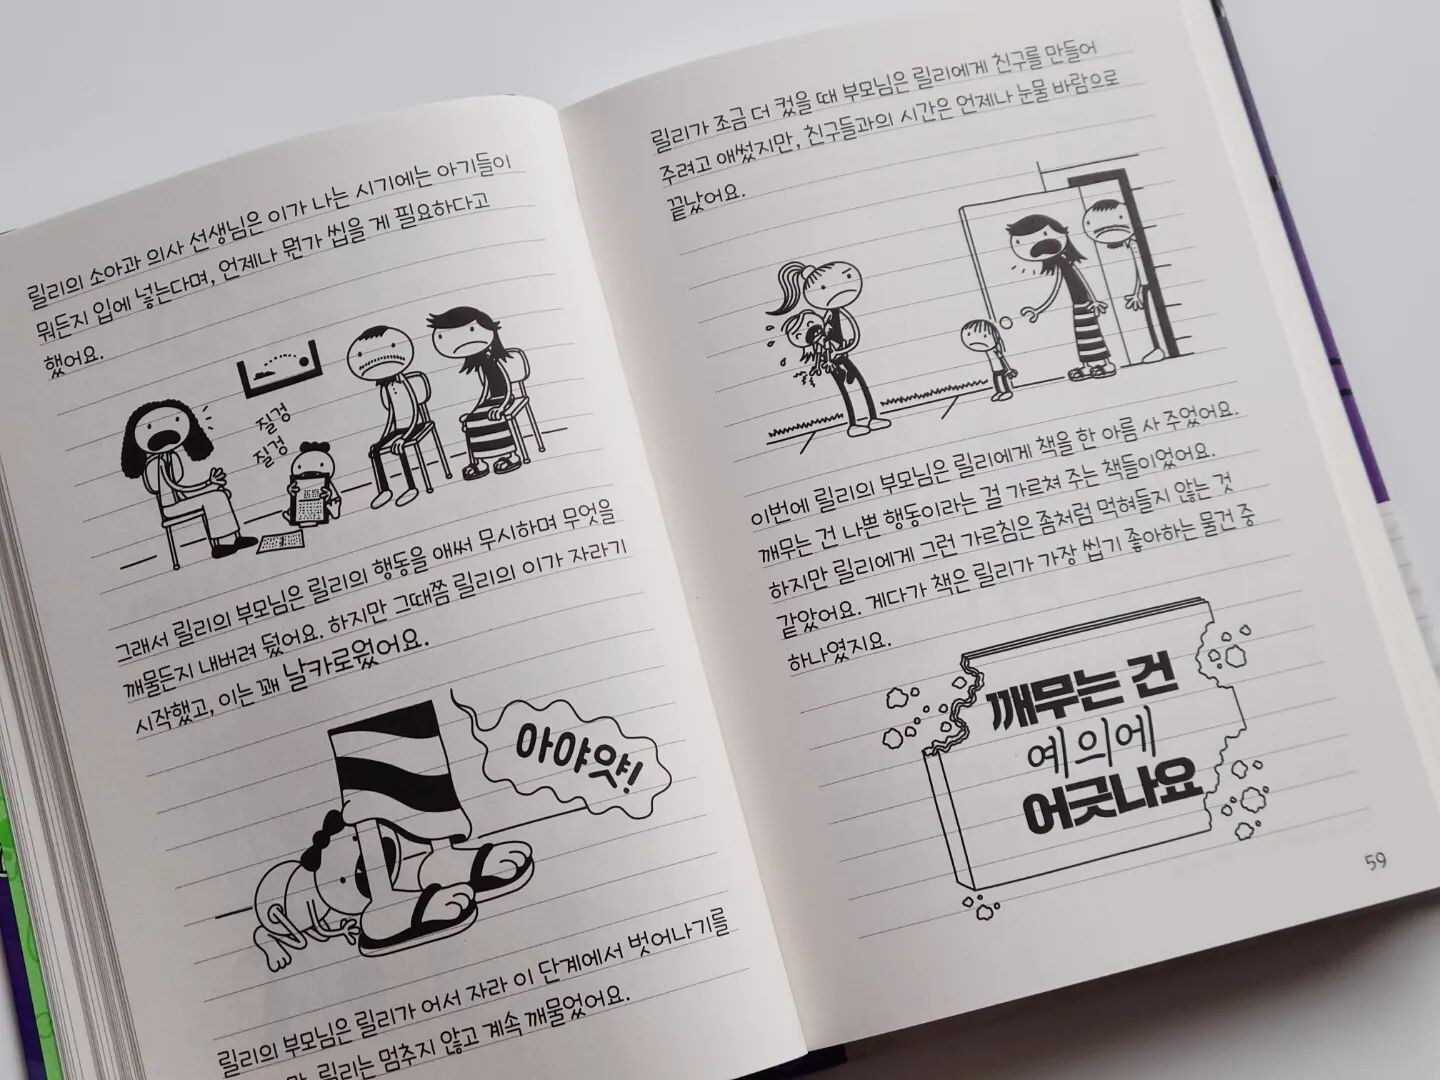 릴리의 소아과 의사 선생님은 이가 나는 시기에는 아기들이
뭐든지 입에 넣는다며, 언제나 뭔가 씹을 게 필요하다고
했어요.
질겅
질겅
그래서 릴리의 부모님은 릴리의 행동을 애써 무시하며 무엇을
깨물든지 내버려 뒀어요. 하지만 그때쯤 릴리의 이가 자라기
시작했고, 이는 꽤 날카로웠어요.
아야얏!
릴리의 부모님은 릴리가 어서 자라 이 단계에서 벗어나기를
릴리는 멈추지 않고 계속 깨물었어요.
릴리가 조금 더 컸을 때 부모님은 릴리에게 친구를 만들어
주려고 애썼지만, 친구들과의 시간은 언제나 눈물 바람으로
끝났어요.
이번에 릴리의 부모님은 릴리에게 책을 한 아름 사 주었어요.
깨무는 건 나쁜 행동이라는 걸 가르쳐 주는 책들이었어요.
하지만 릴리에게 그런 가르침은 좀처럼 먹혀들지 않는 것
같았어요. 게다가 책은 릴리가 가장 씹기 좋아하는 물건 중
하나였지요.
깨무는 건
예의에
어긋나요
59